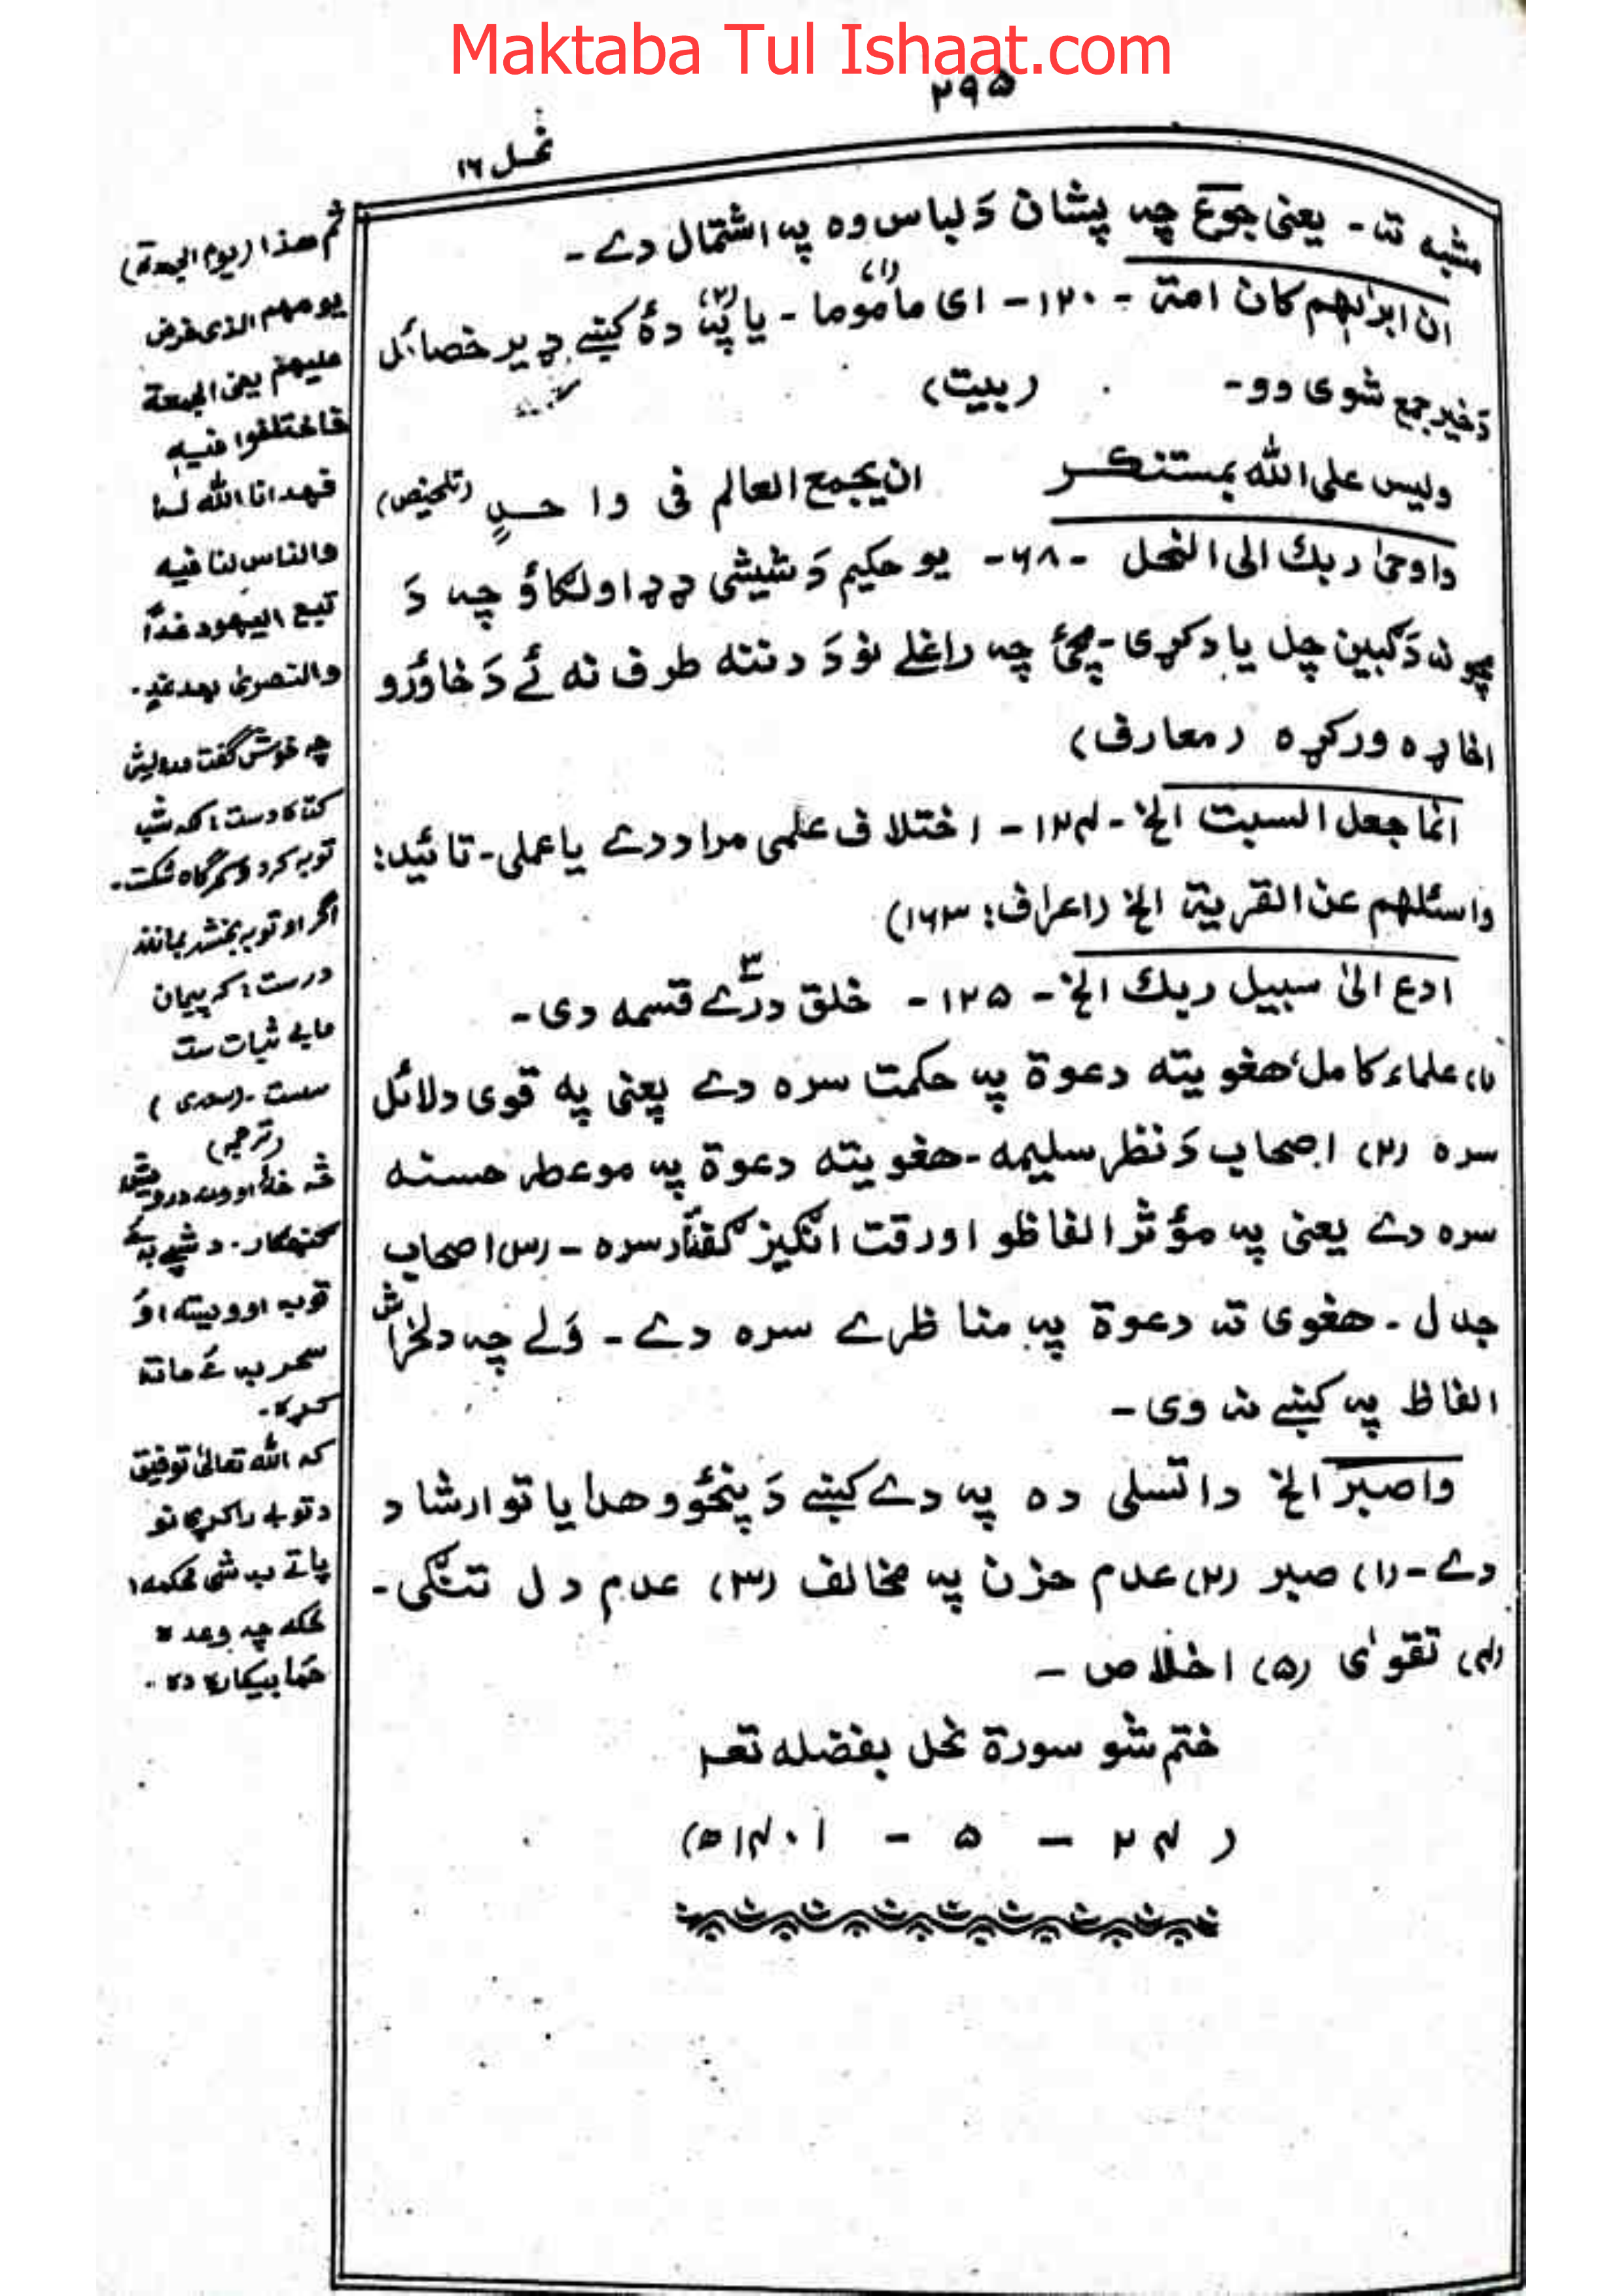 Maktaba Tul Ishaat.com
۲۹۵
نحل ۱۶
مشبه ته - یعنی جوع چه پشان دَ لباس وه په اشتمال دے -
ان ابرٰهیم کان امة - ۱۲۰ - ای ماموما (۱) - یا په (۲) دهٔ کښے ډیر خصائل
دَ خیر جمع شوی وو - (بیت)
ولیس علی الله بمستنکر ان یجمع العالم فی واحدٍ (تلخیص)
واوحیٰ ربك الی النحل - ۶۸ - یو حکیم دَ شیشی ډډ اولګاؤ چه دَ
مچو نه دَ ګبین چل یاد کړی - مچئ چه راغلے نو دَ دننه طرف نه ئے دَ خاؤرو
اخاړه ورکړه (معارف)
انما جعل السبت الخ - ۱۲۴ - اختلاف علمی مراد دے یا عملی - تائید:
واسئلهم عن القریة الخ (اعراف: ۱۶۳)
ادع الیٰ سبیل ربك الخ - ۱۲۵ - خلق درے ۳ قسمه دی -
(۱) علماء کامل هغویته دعوة په حکمت سره دے یعنی په قوی دلائل
سره (۲) اصحاب دَ نظر سلیمه - هغویته دعوة په موعظه حسنه
سره دے یعنی په مؤثر الفاظو او رقت انګیز ګفتار سره - (۳) اصحاب
جدل - هغوی ته دعوة په مناظرے سره دے - وَلے چه دلخراش
الفاظ په کښے نه وی -
واصبر الخ دا تسلی ده په دے کښے دَ پنځو هدایاتو ارشاد
دے - (۱) صبر (۲) عدم حزن په مخالف (۳) عدم دل تنګی -
(۴) تقویٰ (۵) اخلاص -
ختم شو سورة نحل بفضله تعہ
(۲۴ - ۵ - ۱۴۰۱ه)
ثم هذا (یوم الجمعة)
یومهم الذی فرض
علیهم یعنی الجمعة
فاختلفوا فیه
فهدانا الله له
والناس لنا فیه
تبع الیهود غدًا
والنصریٰ بعد غدٍ.
چه خوش گفت درویش
کتاه دست؛ که شب
توبه کرد و سحرگاه شکست.
اگر او توبه بخشد بماند
درست؛ که پیمان
مابے ثبات ست
سست - (سعدی)
(ترجمه)
ګنهګار. د شپے به ئے
توبه اوویسته او
سحر به ئے ماته
کړه.
که الله تعالیٰ توفیق
د توبے راکړی نو
پاتے به شی محکمه؛
ځکه چه وعده
ځما بیکاره ده.